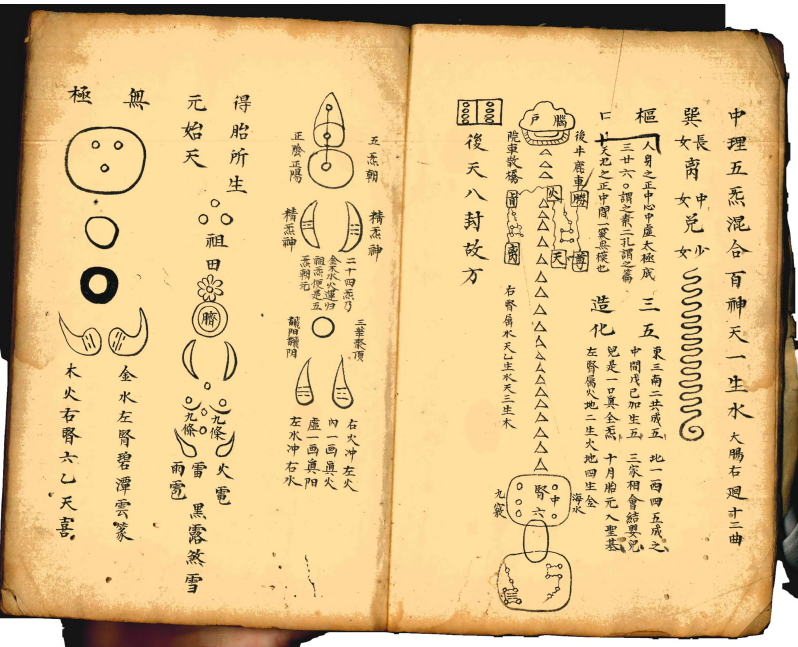 中理五炁混合百神天一生水 大腸右廻十二曲
巽 長女 离 中女 兌 少女
樞
人身之正中心中虛太極成
三廿六〇謂之
二孔謂之
天地之正中間一竅
也
三五
東三南二共成五 北一西四五成之
中間戊己加生五 三家相會結嬰兒
兒是一口真全炁 十月胎元入聖基
造化
左腎屬火地二生火地四生金
後牛鹿車
腦戶
火
天
右腎屬水天乙生水天三生木
海水
腎中六
九竅
後天八卦故方
五炁朝
正陰正陽
精炁神
精炁神
二十四炁乃
金木水火運归
祖炁便是五
炁朝元
三華聚頂
右火冲左火
內一画真火
虛一画真阳
左水冲右水
得胎所生
元始天
祖田
臍
九條
九條
火雹
雷
雨雹
黑露煞雪
無極
金水左腎碧潭雲篆
木火右腎六乙天喜